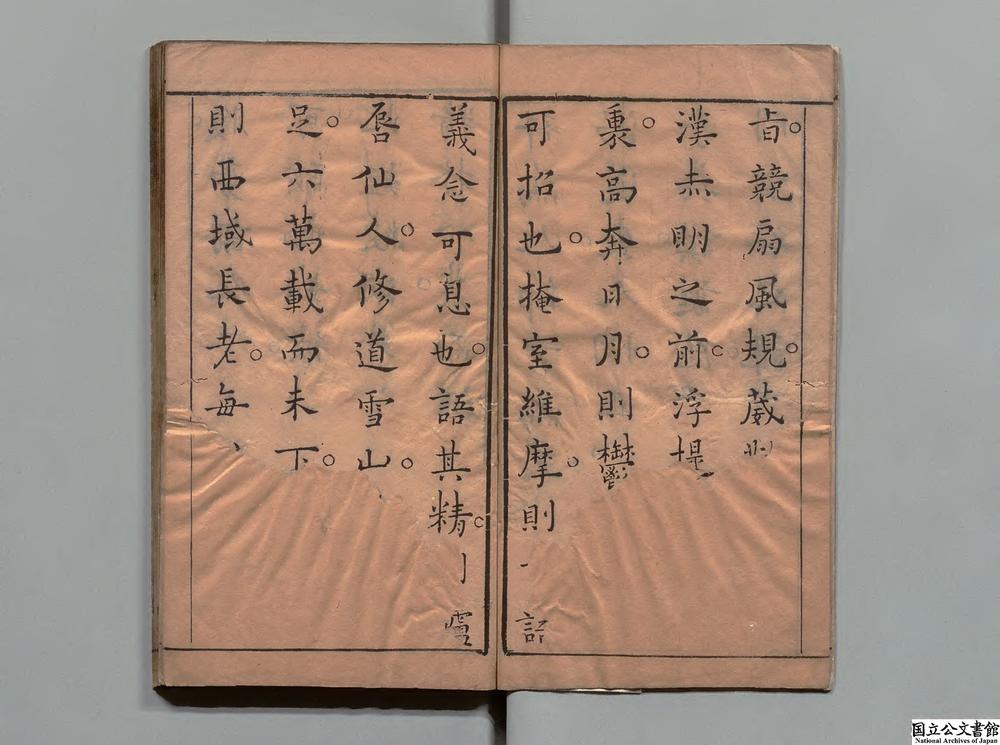 旨競扇風規葳
漢未明之前浮堤
裏高奔日月則欝
可招也掩室維摩則
義念可息也語其精
居仙人修道雪山
足六萬載而未下
則西域長老每
国立公文書館
National Archives of Japan